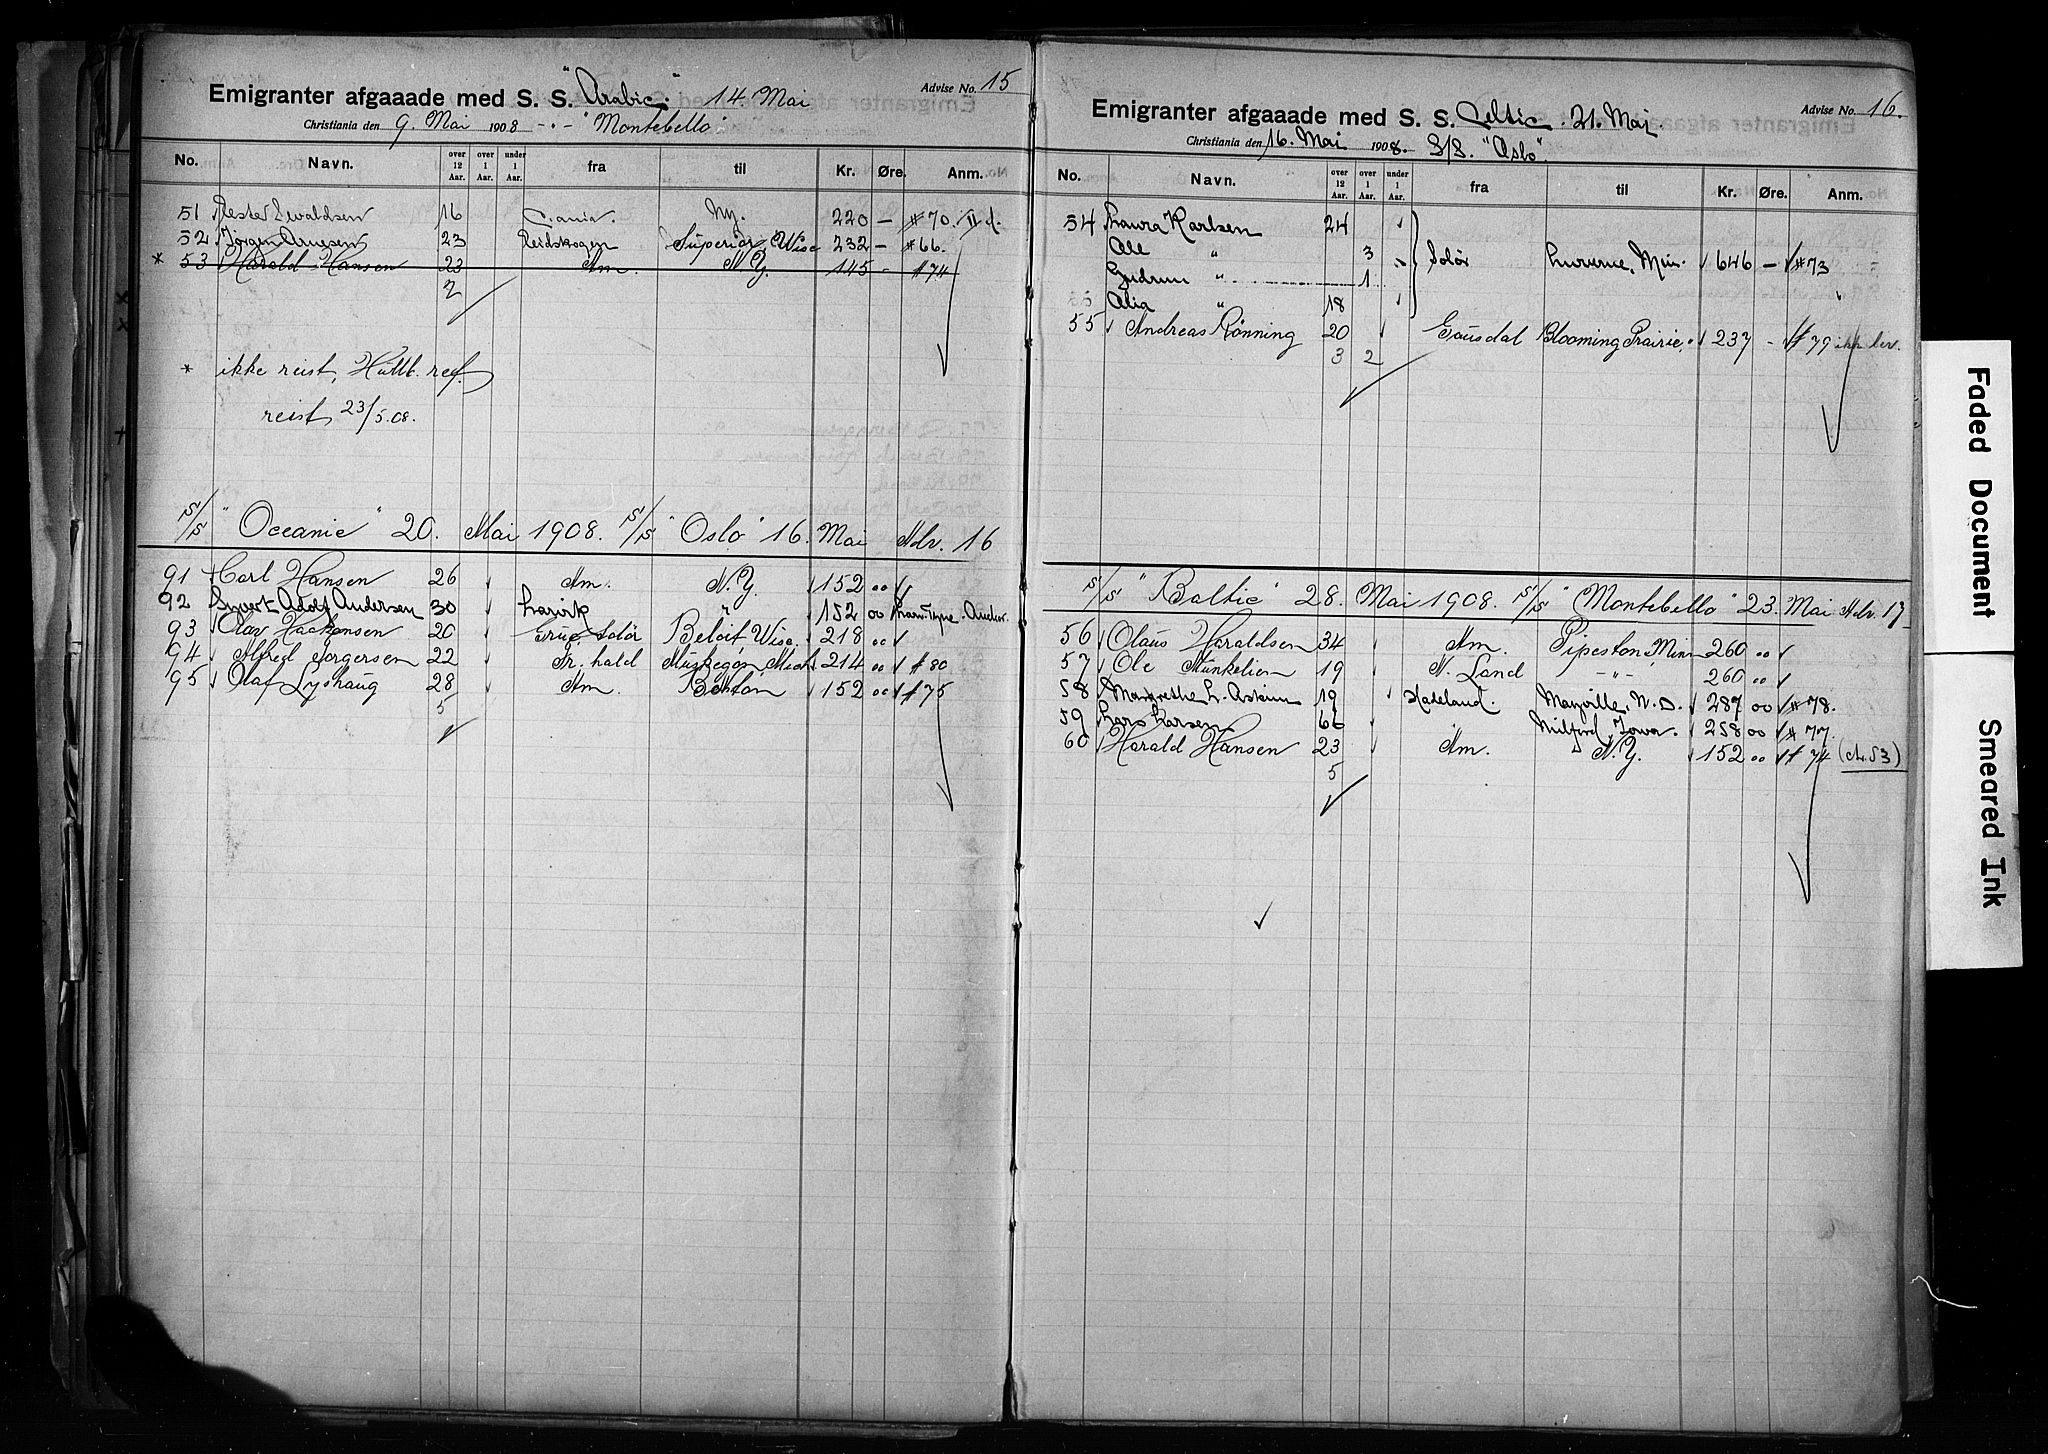 Emigranter afgaaade med S. S. "Arabic" 14. Mai Advise No. 15
Christiania den 9. Mai 1908 - " - "Montebello"
No. Navn. over 12 Aar. over 1 Aar. under 1 Aar. fra til Kr. Øre. Anm.
51 Ewaldsen 16 C.ania. N.Y. 220 - # 70.
52 Jörgen Arnesen 23 Eidskogen Superior, Wisc 232 - # 66.
* 53 Harald Hansen 23 Am. N.Y. 145 - # 74
2
* ikke reist, ref.
reist 23/5.08.
S/S "Oceanic" 20. Mai 1908. S/S "Oslo" 16. Mai Adv. 16
91 Carl Hansen 26 Am. N.Y. 152 00
92 Adolf Andersen 30 Larvik " 152 00
93 Olav Hackensen 20 Grue, Solör Beloit, Wisc. 218 00
94 Alfred Jorgersen 22 Fr. hald Muskegon, Mich. 214 00 # 80
95 Olaf Lyshaug 28 Am. Boston 152 00 # 75
5
Emigranter afgaaade med S. S. Celtic. 21. Mai. Advise No. 16.
Christiania den 16. Mai 1908. S/S. "Oslo".
No. Navn. over 12 Aar. over 1 Aar. under 1 Aar. fra til Kr. Øre. Anm.
54 Laura Karlsen 24
" 3 Solör Min. 646 - # 73
Gudrun " 1
" 18
55 Andreas Rönning 20 Gausdal Blooming Prairie, 237 - # 79
3 2
S/S "Baltic" 28. Mai 1908. S/S "Montebello" 23. Mai Adv. 17
56 Olaus Haraldsen 34 Am. Pipeston, Minn 260 00
57 Ole Munkelien 19 N. Land - " - 260 00
58 Margrethe L. Askim 19 Hadeland. Mayville, N.D. 287 00 # 78.
59 Lars Larsen 66 Milford, Iowa. 258 00 # 77.
60 Harald Hansen 23 Am. N.Y. 152 00 # 74 (ch. 53)
5
Faded Document
Smeared Ink